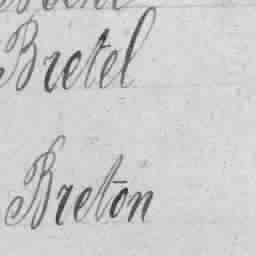 Bretel
Breton